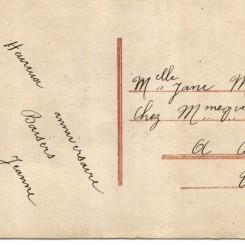 Heureux
anniversaire
Baisers
Jeanne
Melle Jane M
Chez Mme
A